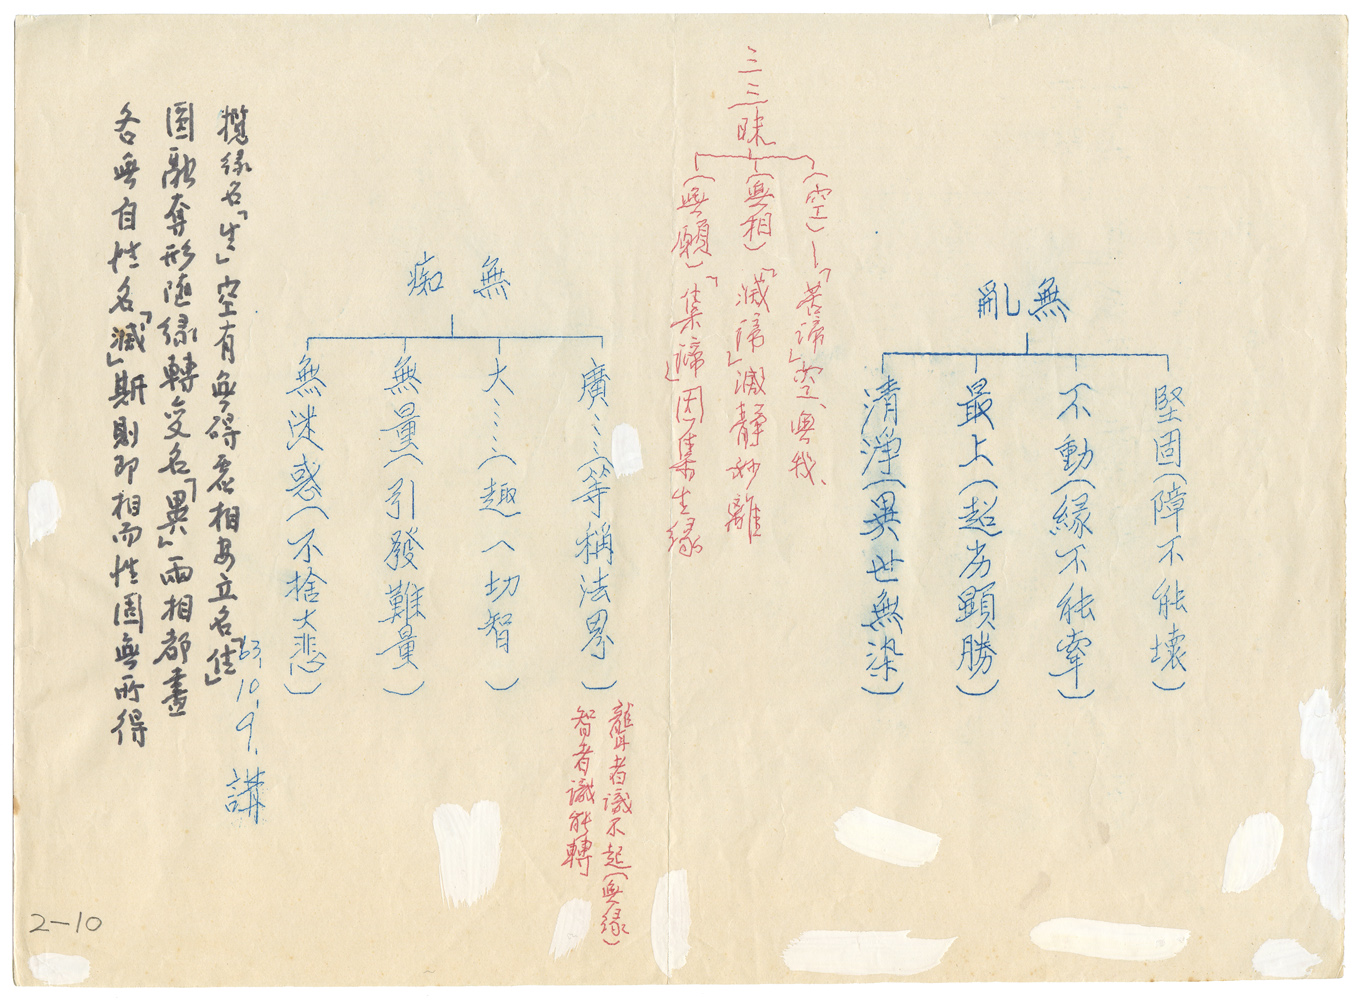 無亂
堅固(障不能壞)
不動(緣不能牽)
最上(超劣顯勝)
清淨(異世無染)
三三昧
(空)—「苦諦」空、無我、
(無相)「滅諦」滅靜妙離
(無願)「集諦」因集生緣
無痴
廣⋯⋯(等稱法界)
大⋯⋯(趣一切智)
無量(引發難量)
無迷惑(不捨大悲)
聾者識不起(無緣)
智者識能轉
63.10.9.講
攬緣名「生」空有無碍虛相安立名「住」
圓融奪形隨緣轉變名「異」兩相都盡
各無自性名「滅」斯則即相而性圓無所得
2-10